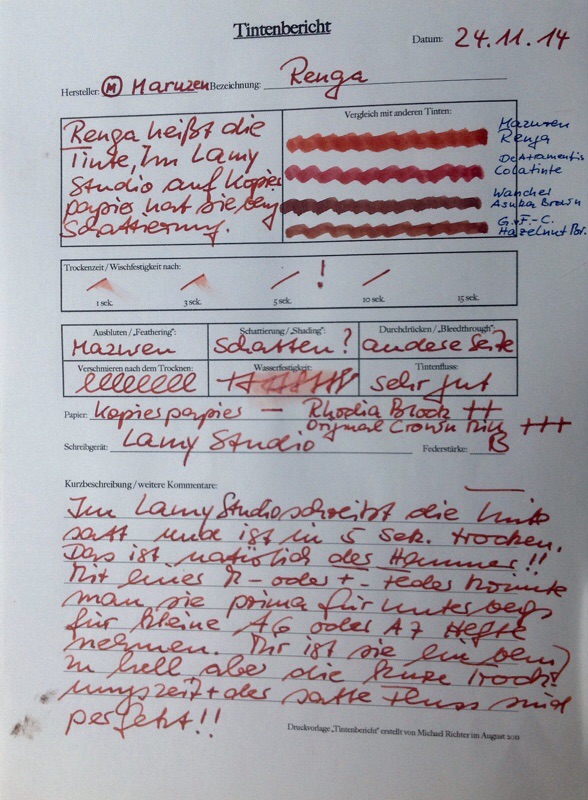 Tintenbericht
Datum: 24.11.14
Hersteller: M Maruzen Bezeichnung: Renga
Renga heißt die
Tinte, Im Lamy
Studio auf Kopier
papier hat sie, beng
Schattierung.
Vergleich mit anderen Tinten:
Maruzen
Renga
DeAtramentis
Colatinte
Wancher
Asuka Brown
G.v.F.-C.
Hazelnut Br.
Trockenzeit / Wischfestigkeit nach:
!
1 sek. 3 sek. 5 sek. 10 sek. 15 sek.
Ausbluten / „Feathering": Schattierung / „Shading": Durchdrücken / „Bleedthrough":
Maruzen Schatten? andere Seite
Verschmieren nach dem Trocknen: Wasserfestigkeit: Tintenfluss:
sehr gut
Papier: Kopierpapier — Rhodia Block ++
Original Crown Mill +++
Schreibgerät: Lamy Studio Federstärke: B
Kurzbeschreibung / weitere Kommentare:
Im Lamy Studio schreibt die Tinte
satt und ist in 5 Sek. trocken.
Das ist natürlich der Hammer!!
Mit einer M- oder F-Feder könnte
man sie prima für unterwegs
für kleine A6 oder A7 Hefte
nehmen. Mir ist sie ein
zu hell aber die kurze Trock
nungszeit + der satte Fluss sind
perfekt!!
Druckvorlage „Tintenbericht" erstellt von Michael Richter im August 2011